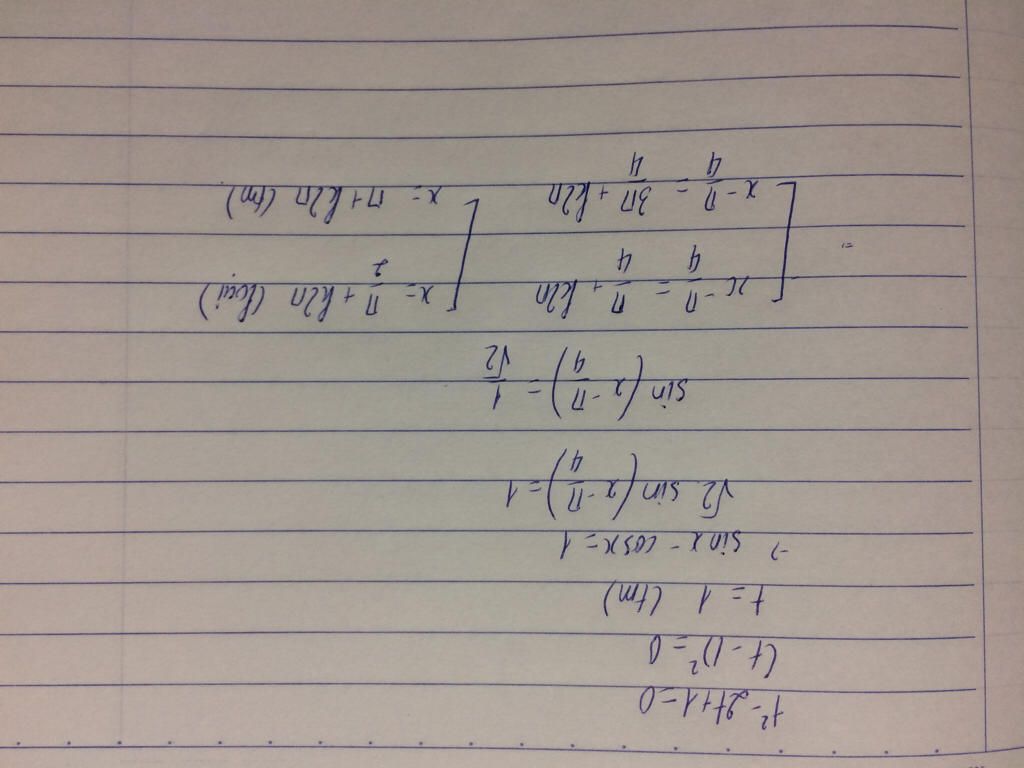 t² - 2t + 1 = 0
(t - 1)² = 0
t = 1 (tm)
→ sinx - cosx = 1
√2 sin (x - π/4) = 1
sin (x - π/4) = 1/√2
[ x - π/4 = π/4 + k2π [ x = π/2 + k2π (loại)
= [ x - π/4 = 3π/4 + k2π [ x = π + k2π (tm)